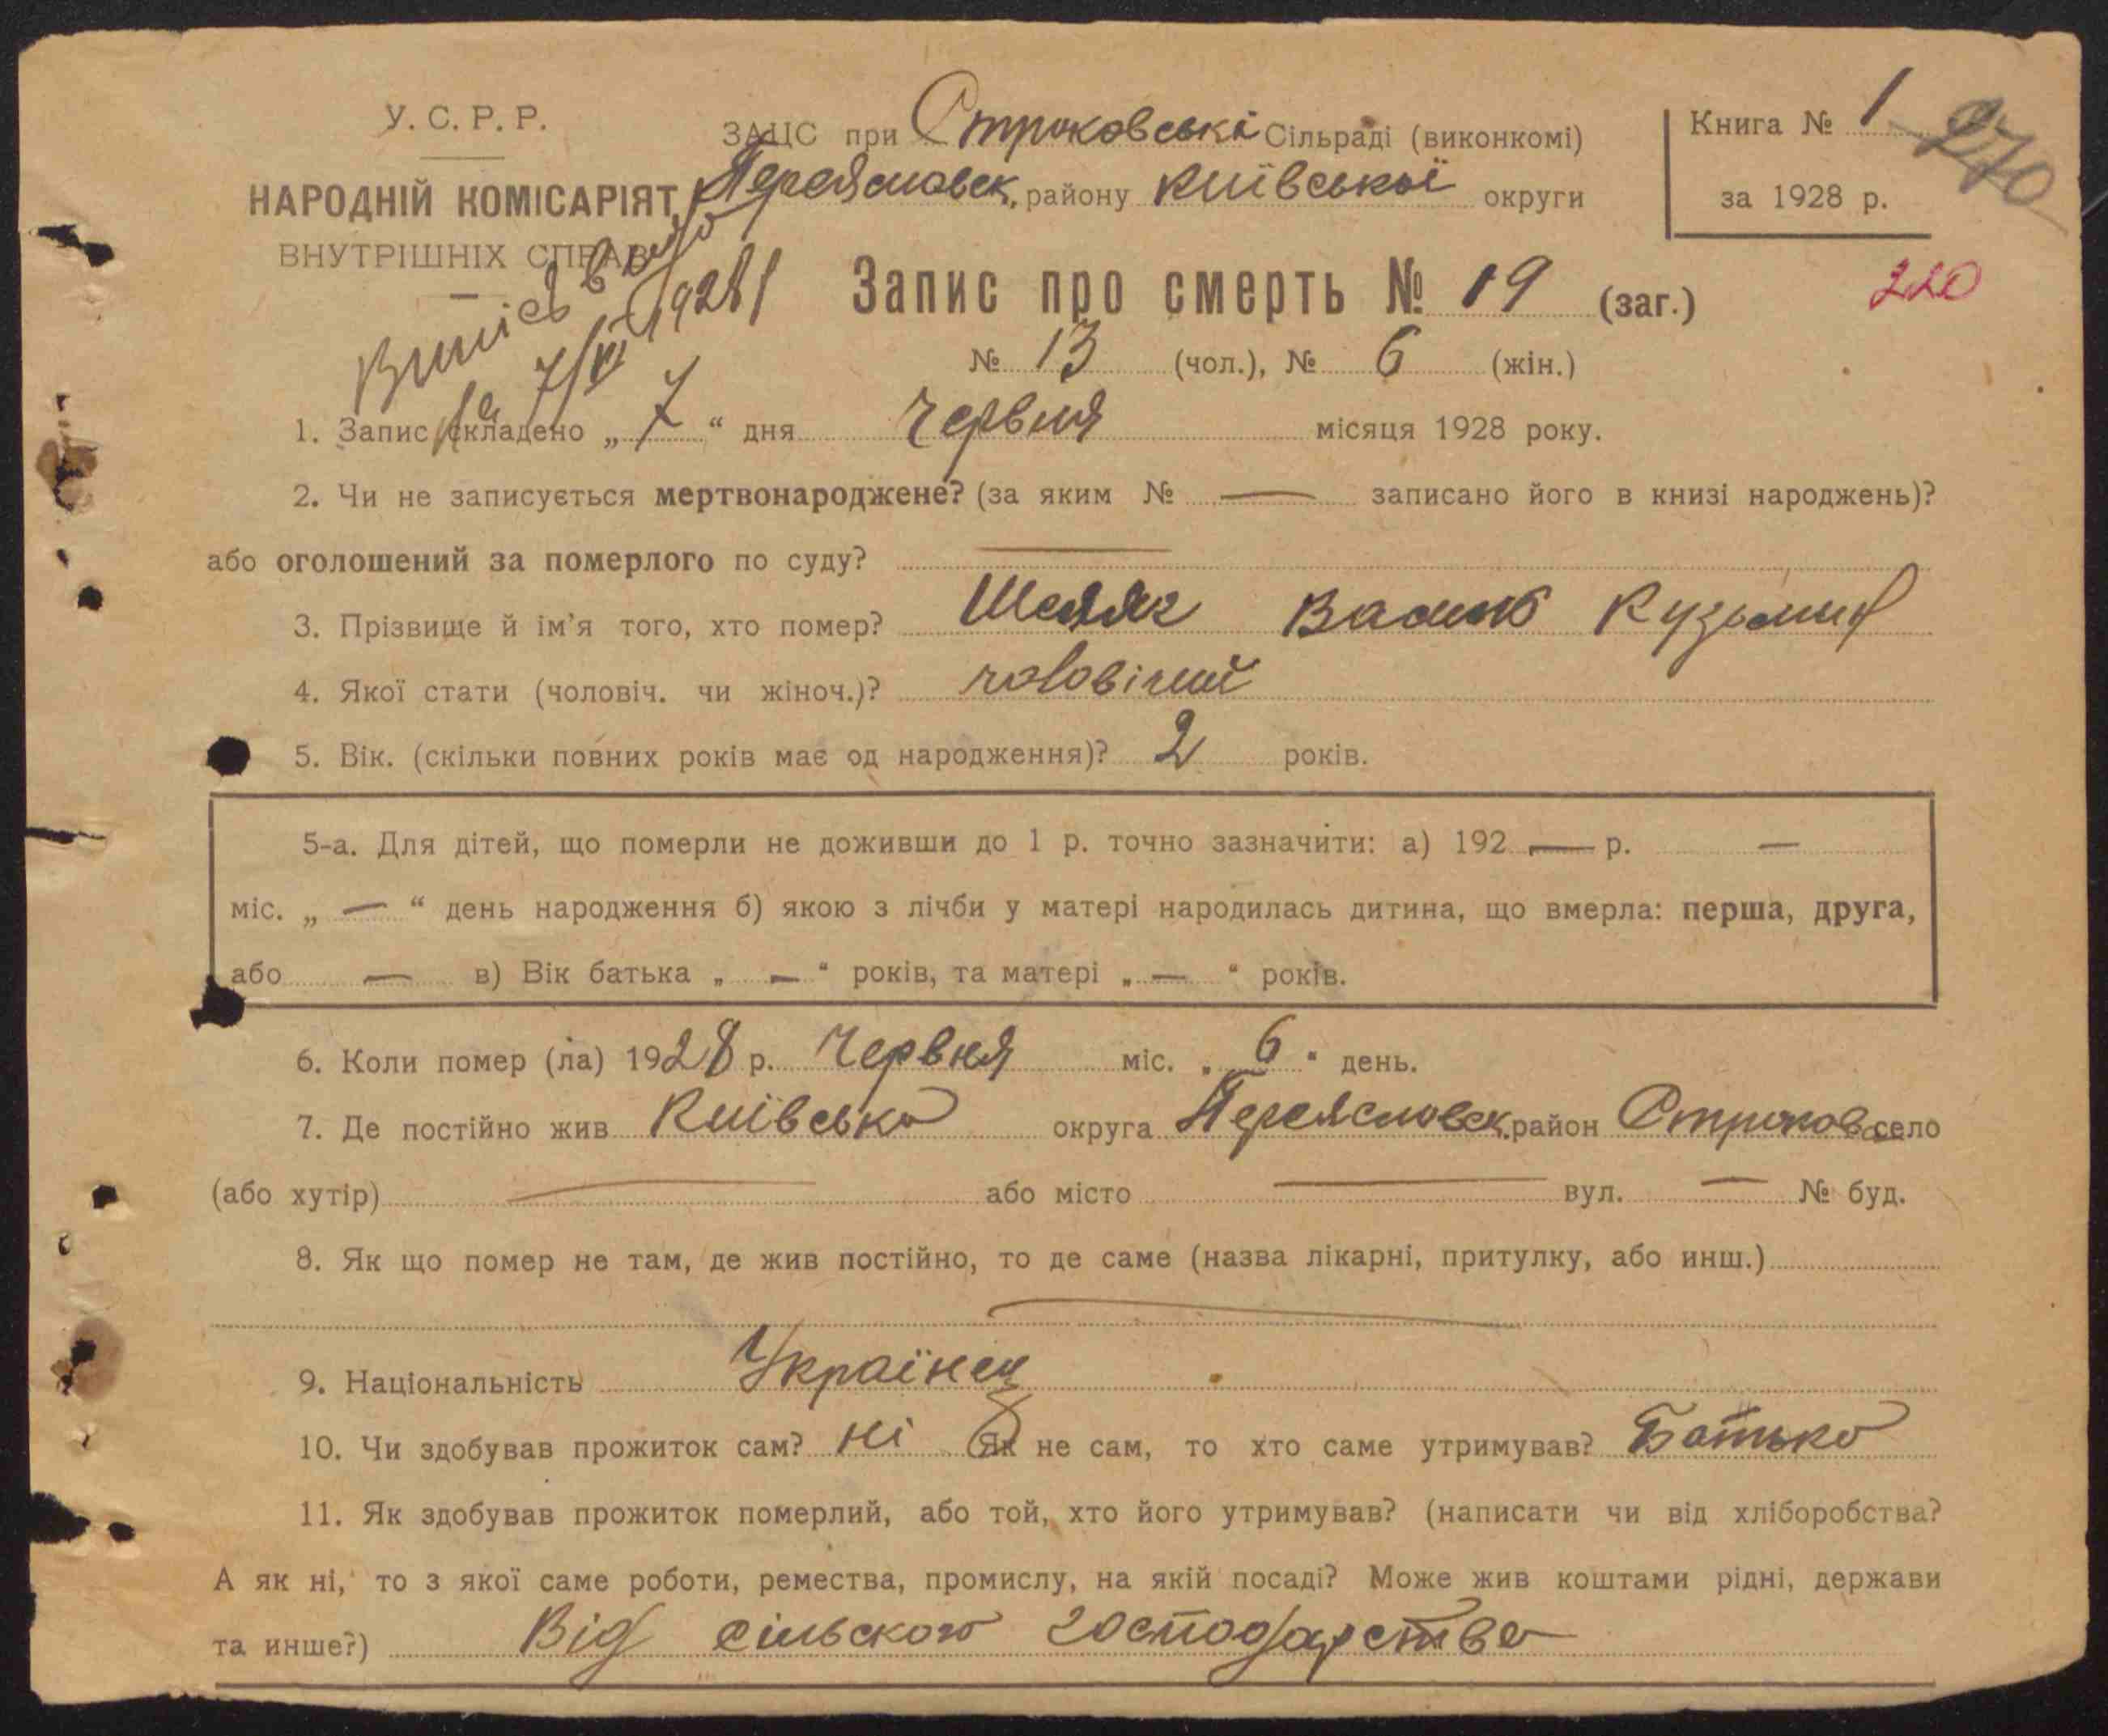 У. С. Р. Р.
НАРОДНІЙ КОМІСАРІЯТ
ВНУТРІШНІХ СПРАВ
ЗАЦС при Строковські Сільраді (виконкомі)
Переясловск. району Київської округи
Книга № 1
за 1928 р.
270
220
7/VI 1928
Запис про смерть № 19 (заг.)
№ 13 (чол.), № 6 (жін.)
1. Запис складено „ 7 “ дня Червня місяця 1928 року.
2. Чи не записується мертвонароджене? (за яким № — записано його в книзі народжень)?
або оголошений за померлого по суду? —
3. Прізвище й ім'я того, хто помер? Василь Кузьмич
4. Якої стати (чоловіч. чи жіноч.)? чоловічий
5. Вік. (скільки повних років має од народження)? 2 років.
5-а. Для дітей, що померли не доживши до 1 р. точно зазначити: а) 192 — р. —
міс. „ — “ день народження б) якою з лічби у матері народилась дитина, що вмерла: перша, друга,
або — в) Вік батька „ — “ років, та матері „ — “ років.
6. Коли помер (ла) 1928 р. Червня міс. „ 6 “ день.
7. Де постійно жив Київська округа Переясловск. район Строкова село
(або хутір) — або місто — вул. — № буд.
8. Як що помер не там, де жив постійно, то де саме (назва лікарні, притулку, або инш.)
—
9. Національність Українец
10. Чи здобував прожиток сам? Ні Як не сам, то хто саме утримував? Батько
11. Як здобував прожиток померлий, або той, хто його утримував? (написати чи від хліборобства?
А як ні, то з якої саме роботи, ремества, промислу, на якій посаді? Може жив коштами рідні, держави
та инше?) Від сільского господарства